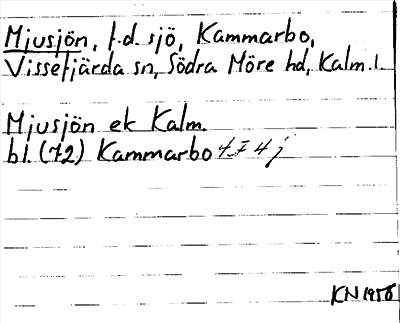 Mjusjön, f.d. sjö, Kammarbo,
Vissefjärda sn, Södra Möre hd, Kalm. l.
Mjusjön ek Kalm.
bl. (72) Kammarbo 4F 4 j
KN 1956